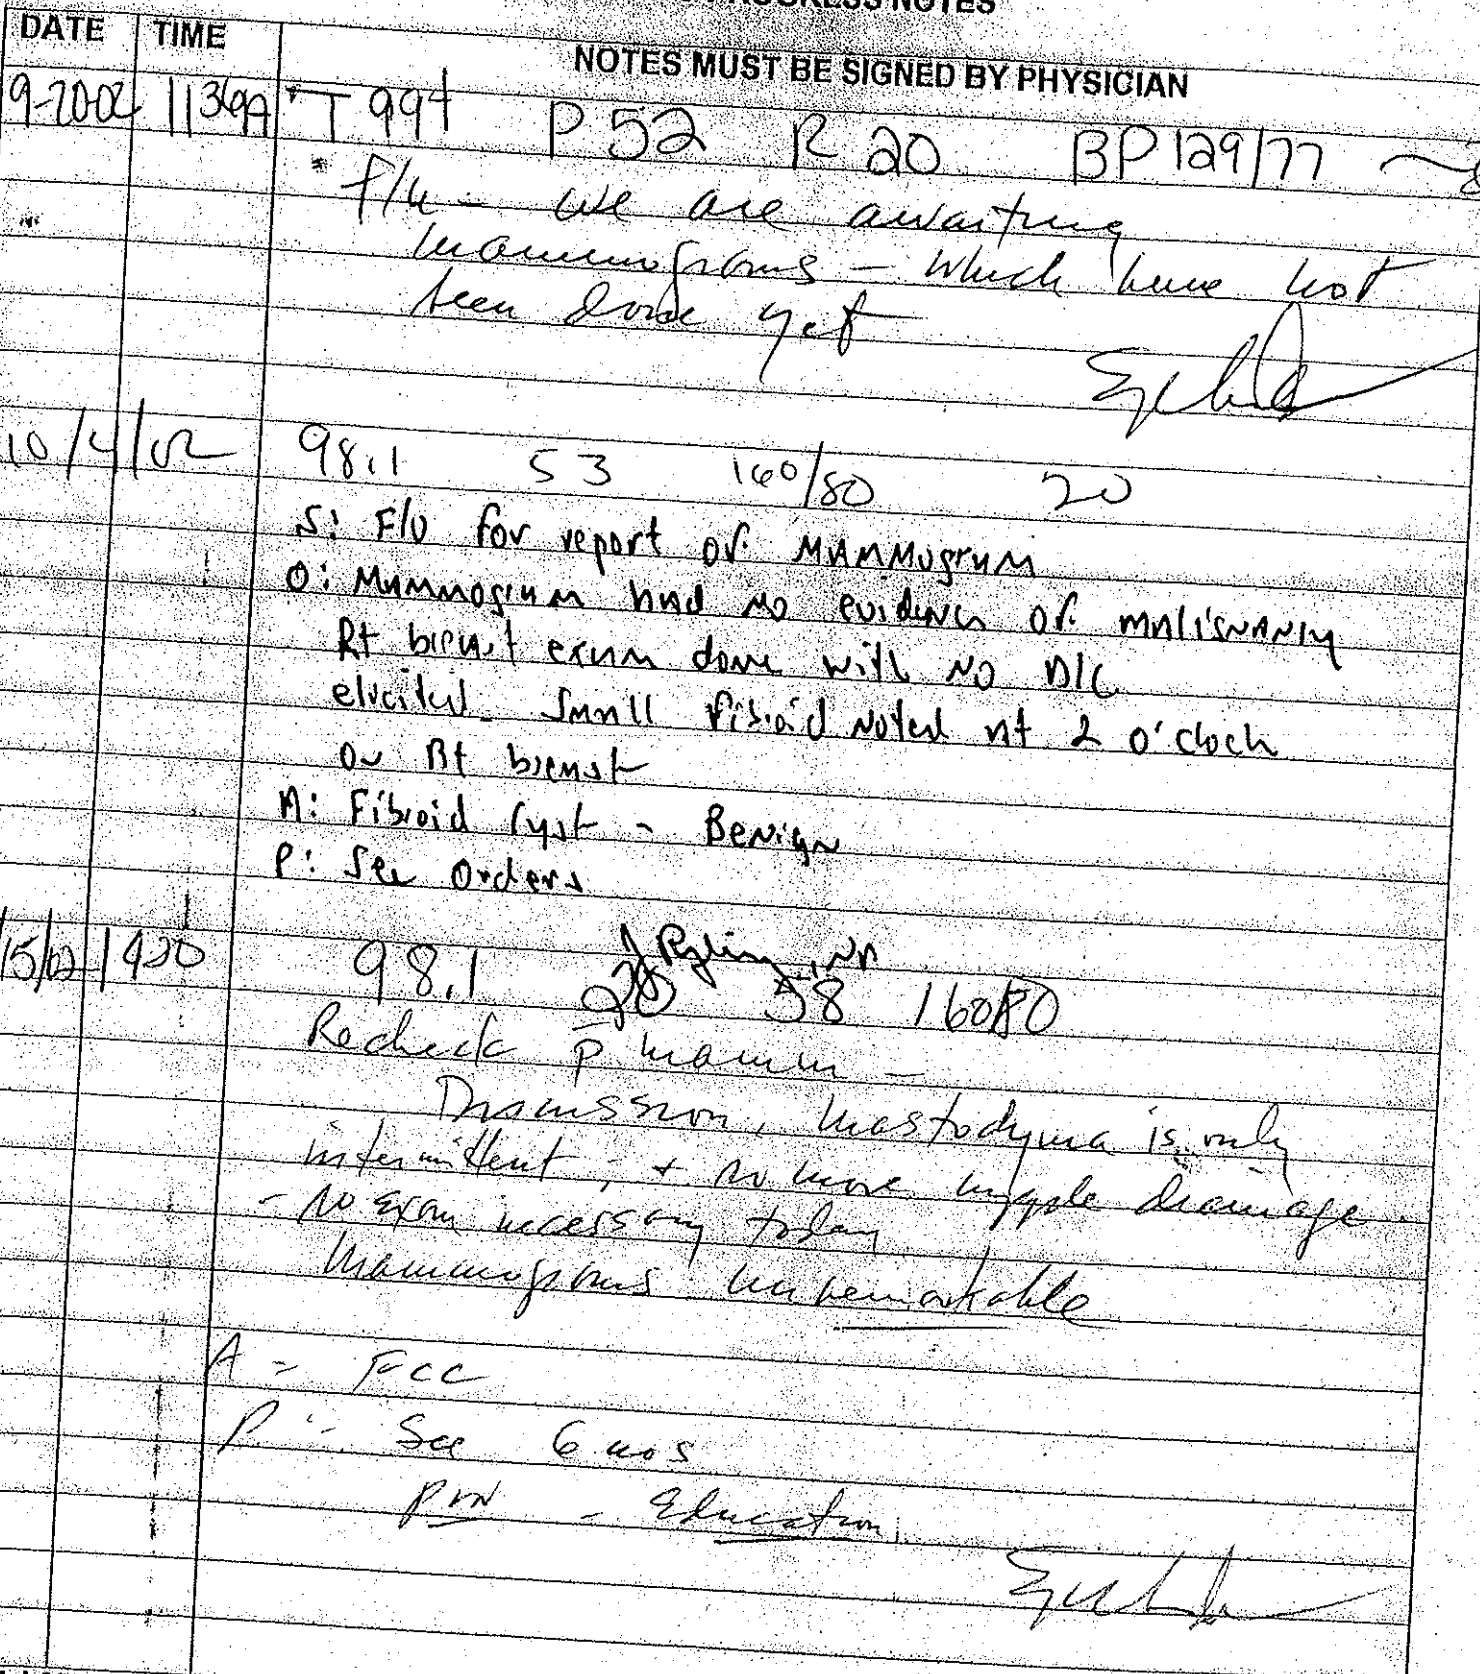 PROGRESS NOTES
DATE TIME NOTES MUST BE SIGNED BY PHYSICIAN
9-20-02 1136A T 994 P 52 R 20 BP 129/77
f/u - we are awaiting
mammograms - which have not
been done yet
10/4/02 98.1 53 160/80 20
S: F/U for report of mammogram
O: Mammogram had no evidence of malignancy
Rt breast exam done with no D/C
elicited. Small fibroid noted at 2 o'clock
on Rt breast
A: Fibroid Cyst - Benign
P: See Orders
15/02 1420 98.1 20 58 160/80
Recheck p mamm -
Discussion, mastodynia is only
intermittent, + no more nipple drainage.
- No exam necessary today
Mammograms unremarkable
A - FCC
P - See 6 mos
prn - Education